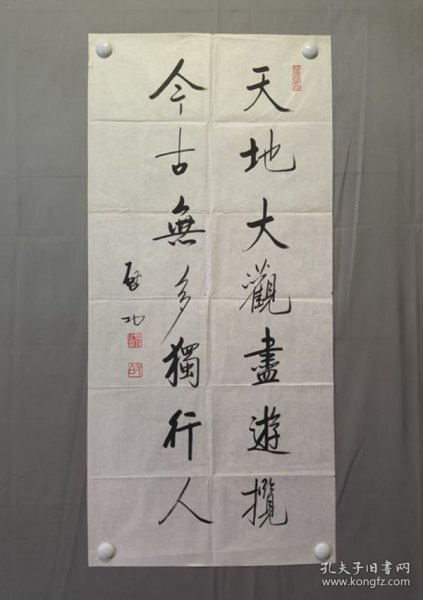 天地大觀盡遊攬
今古無多獨行人
啟功
孔夫子旧書网
www.kongfz.com